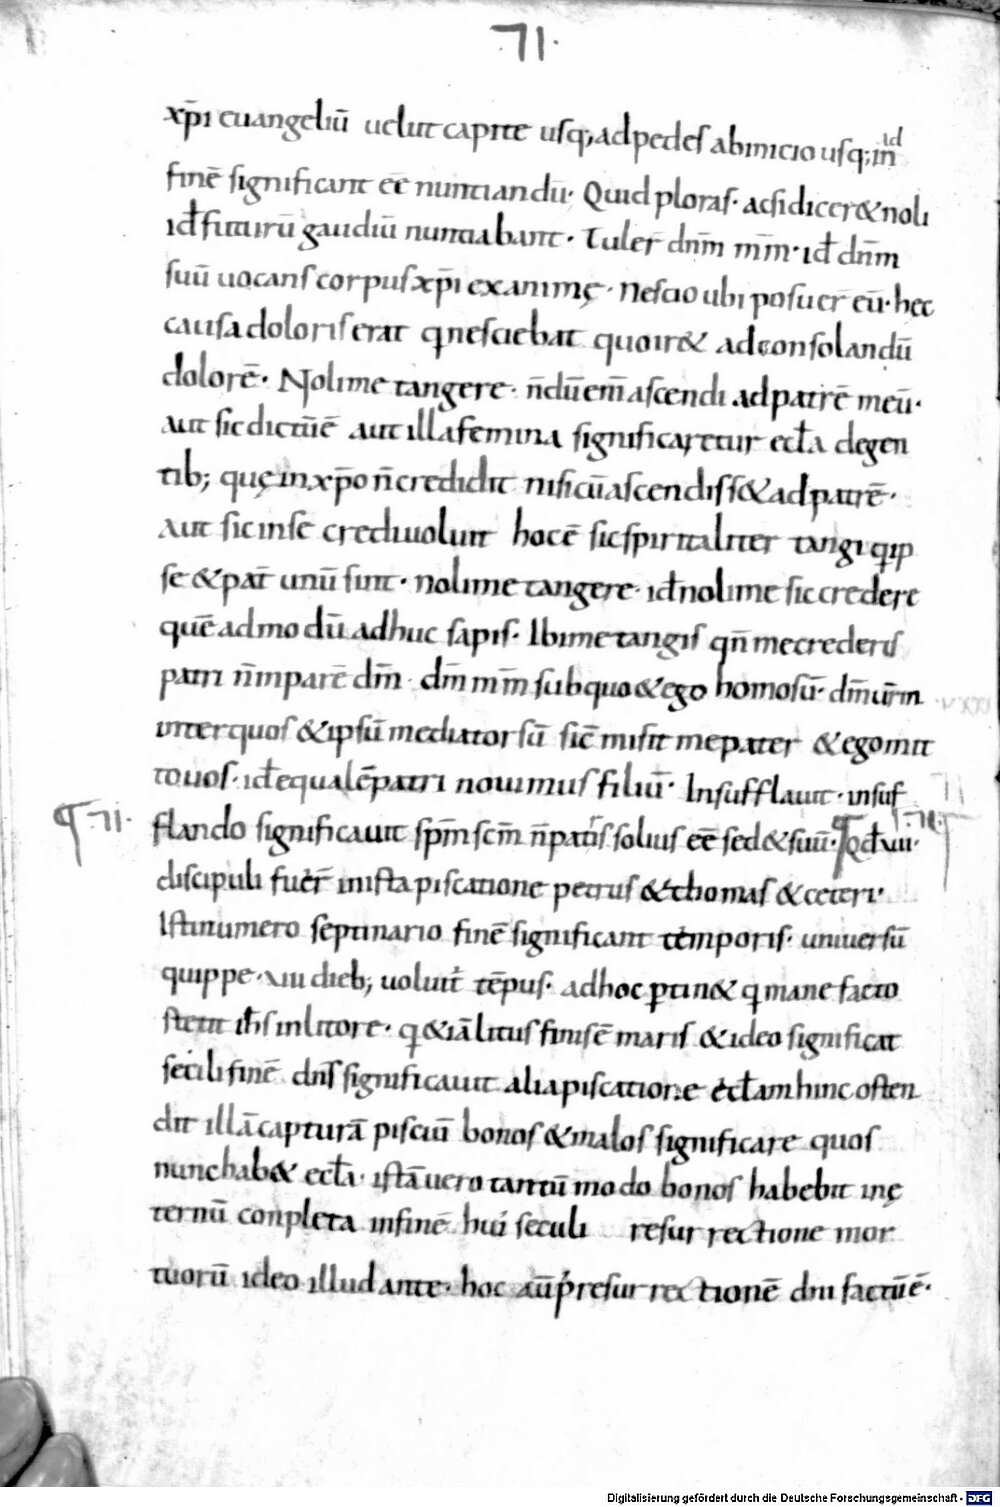 71.
xp̄i euangeliū uelut capite usq; ad pedes ab inicio usq; in ad
finē significant eē nuntiandū. Quid ploras. ac si dicer& noli
id ē futurū gaudiū nuntiabant. Tuler̄ dn̄m m̄m. id ē dn̄m
suū uocans corpus xp̄i exanimę. Nescio ubi posuer̄ eū. hec
causa doloris erat q nesciebat quo ir& ad consolandū
dolorē. Noli me tangere. n̄dū em̄ ascendi ad patrē meū.
aut sic dictū ē aut illa femina significaretur eccl̄a degen
tib; quę in xp̄o n̄ credidit nisi cū ascendiss& ad patrē.
aut sic in se credi uoluit hoc ē sic spiritaliter tangi q ip
se & pat̄ unū sint. noli me tangere. id ē noli me sic credere
quē ad mo dū adhuc sapis. Ibi me tangis qn̄ me crederis
patri n̄ imparē dm̄. dm̄ m̄m sub quo & ego homo sū. dm̄ ur̄m
inter quos & ipsū mediator sū sic̄ misit me pater & ego mit
to uos. id ē equalē patri nouimus filiū. Insufflauit. insuf
¶.71. flando significauit sp̄m sc̄m n̄ patris solius eē sed & suū. ¶.71. Qd̄ .vii.
discipuli fuer̄ in ista piscatione petrus & thomas & ceteri.
Isti numero septinario finē significant temporis. uniuersū
quippe .vii. dieb; uoluit̄ tēpus. ad hoc ptin& q mane facto
stetit ih̄s in litore. q & iā litus finis ē maris & ideo significat
seculi finē dn̄s significauit alia piscatione eccl̄am hinc osten
dit illā capturā pisciū bonos & malos significare quos
nunc hab& eccl̄a. istā uero tantū modo bonos habebit in ę
ternū conpleta in finē hui' seculi resurrectione mor
tuorū ideo illud ante. hoc aū p' resurrectionē dn̄i factū ē.
Digitalisierung gefördert durch die Deutsche Forschungsgemeinschaft - DFG